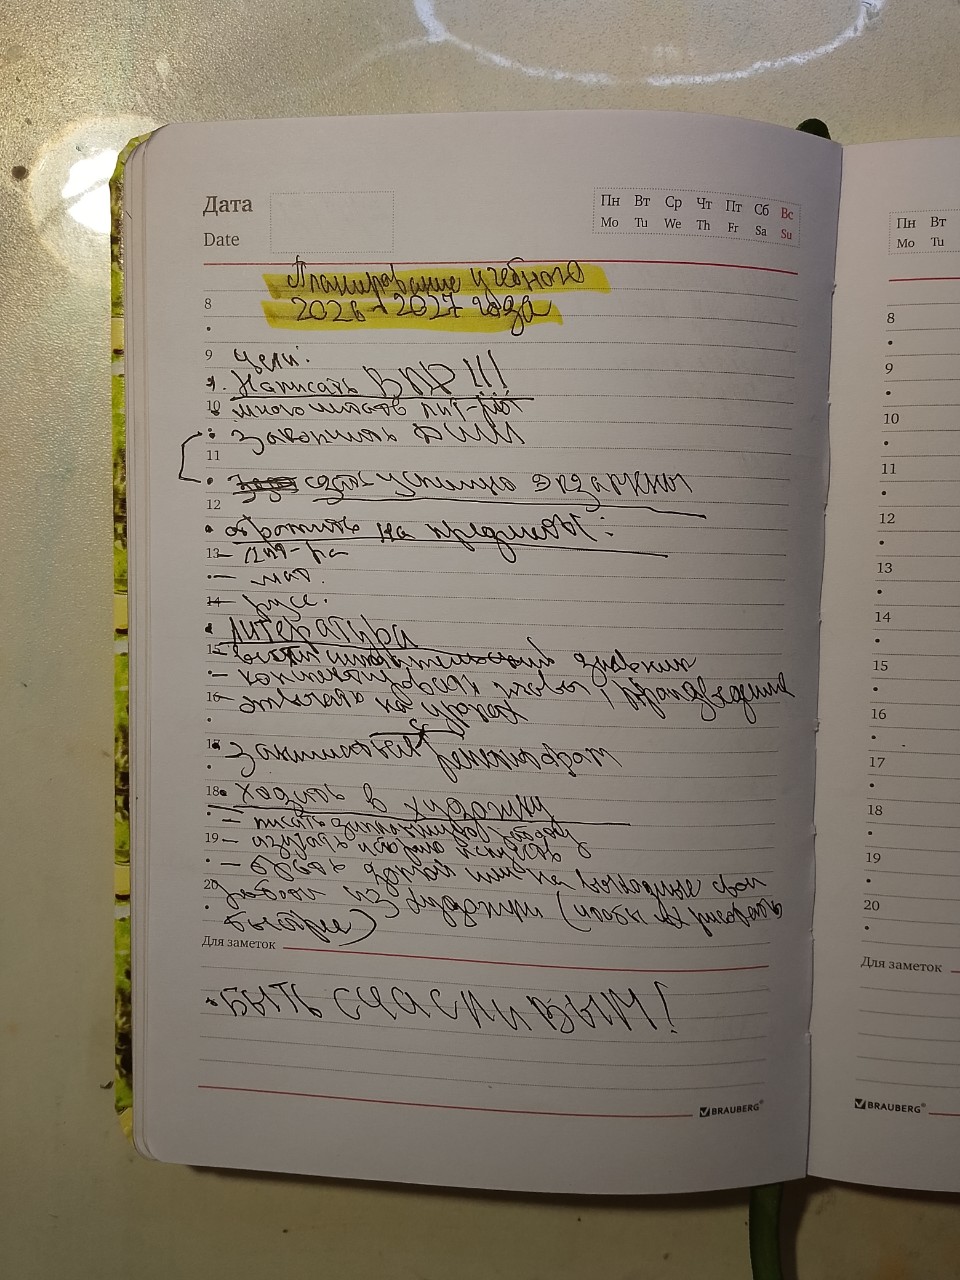 Дата
Date
Пн Вт Ср Чт Пт Сб Вс
Mo Tu We Th Fr Sa Su
Планирование учебного
2026-2027 года
8
9 Цели:
Написать ВПР!!!
10 много читать лит-ры
Закончить
11
сдать успешно экзамены
12
обратить на предметы:
13 - лит-ра
- мат.
14 - русс.
литература
15 - читательский дневник
- конспектировать произведения
16 - отвечать на уроках
17 заниматься с репетитором
18 ходить в художку
- писать работу
19 - изучать историю искусств
- брать домой на выходные свои
20 работы из художки (чтобы рисовать
быстрее)
Для заметок
БЫТЬ СЧАСТЛИВЫМ!
BRAUBERG®
Пн Вт
Mo Tu
8
9
10
11
12
13
14
15
16
17
18
19
20
Для заметок
BRAUBERG®